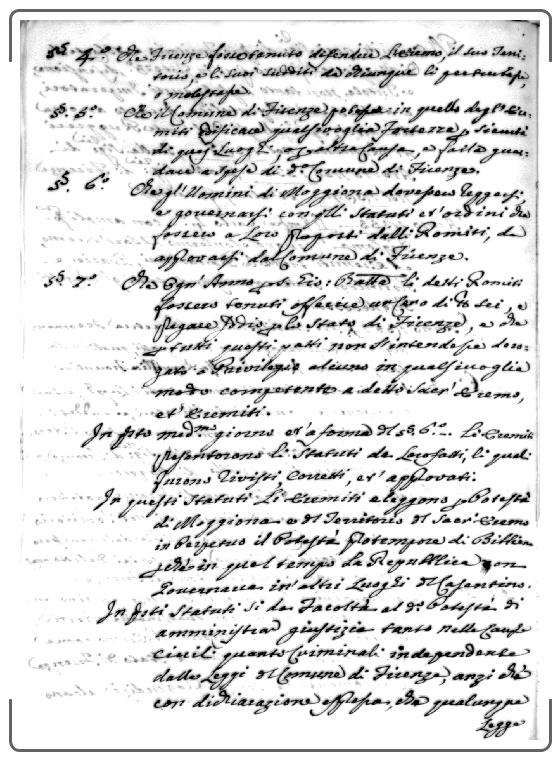 §. 4.° Che Firenze fosse tenuto difendere l'Eremo, il suo Terri-
torio, e li suoi sudditi da chiunque li perturbasse,
o molestasse
§. 5.° Che il Comune di Firenze potesse in quello degl'Ere-
miti edificare qualsivoglia Fortezza p sicurtà
di quei Luoghi, o p altre Cause, e farla guar-
dare a spese di d.° Comune di Firenze.
§. 6.° Che gl'Uomini di Moggiona dovessero reggersi
e governarsi con gli Statuti et ordini che
fossero a Loro proposti dalli Romiti, da
approvarsi dal Comune di Firenze.
§. 7.° Che Ogn'Anno p S. Gio: Batta li detti Romiti
fossero tenuti offerire un Cero di sei, e
pregare Iddio p lo Stato di Firenze, e che
p tutti questi patti non s'intendesse dero-
gato a Privilegio alcuno in qualsivoglia
modo competente a detto Sacr'Eremo,
et Eremiti.
In d.to med.mo giorno et a forma del §. 6.° Li Eremiti
presentorono li Statuti da Loro fatti, li quali
furono rivisti, corretti, et approvati.
In questi Statuti Li Eremiti eleggono p Potestà
di Moggiona e del Territorio del Sacr'Eremo
in perpetuo il Potestà pro tempore di Bibbiena
p chè in quel tempo la Repubblica non
Governava in altri Luoghi del Casentino.
In d.ti Statuti si da Facoltà al d.° Potestà di
amministrar giustizia tanto nelle Cause
civili quanto Criminali independente
dalle Leggi del Comune di Firenze, anzi chè
con dichiarazione espressa, che qualunque
Legge